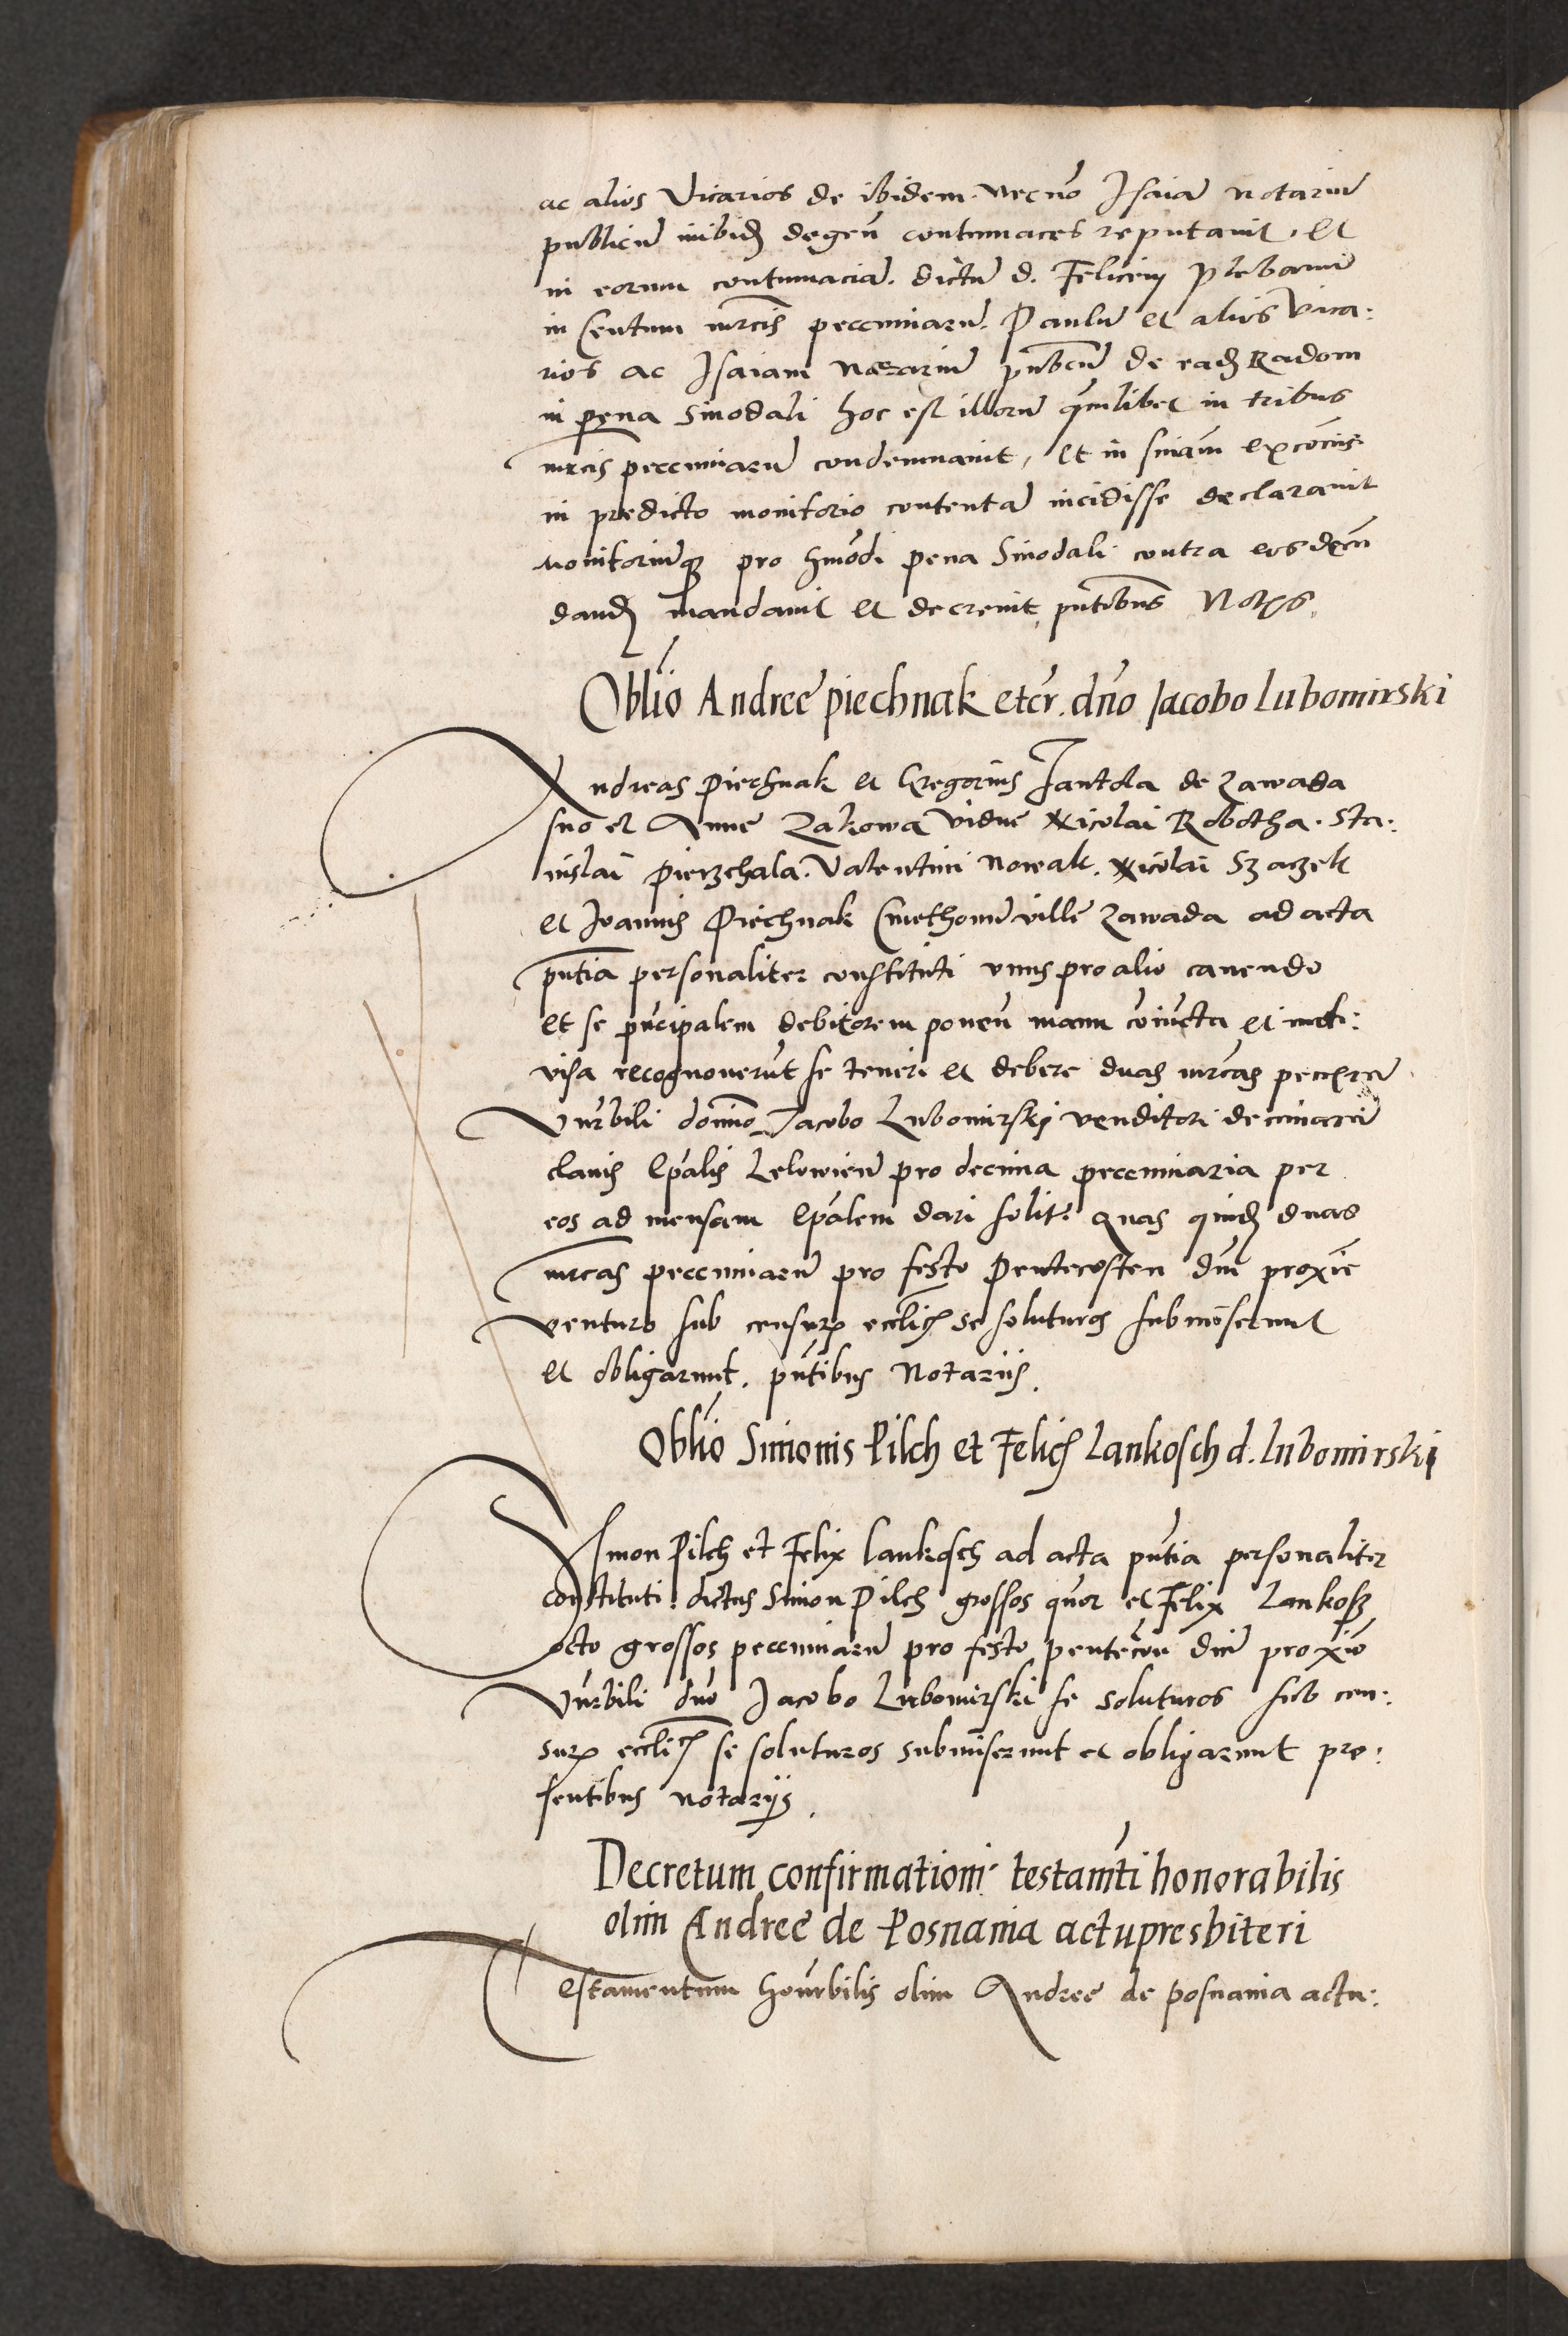 ac alios Vicarios de ibidem. Necnō Isaiā notariū
publicū inibid degeñ contumaces reputavit, Et
in eorum contumaciā. dictū d. Felicem Plebanū
in Centum mrcis pecuniarū. Paulū et alios Vica:
rios ac Isaiam Notariū publicū de ead Radom
in pena sinodali hoc est illorū quilibet in tribus
mrcis pecuniarū condemnavit, Et in sniam excōcis
in predicto monitorio contentā incidisse declaravit
Monitoriumq pro hmōdi pena Sinodali contra eos decñ
dand mandavit et decrevit, pñtibus Notys.
Oblió Andreę piechnak etcr. dño Jacobo Lubomirski
Andreas Piechnak et Gregorius Jantola de Zawada
suo et Annę Zakowa viduę Nicolai Robotha. Sta:
nislai Pierzchala. Valentini Nowak. Nicolai Szaczek
et Joannis Piechnak Cmethonū villę Zawada ad acta
pñtia personaliter constituti unus pro alio cavendo
et se pñcipalem debitorem poneñ manu cōiūcta et indi:
visa recognoverūt se teneri et debere duas mrcas pecc
Vñrbili domino Jacobo Lubomirski venditori decimarū
clavis Epalis Lelowieñ pro decima pecuniaria per
eos ad mensam Epalem dari solit: quas quid duas
mrcas pecuniarū pro festo Pentecosten dni proxie
venturo sub censur eccłic se soluturos submiserunt
et obligarunt. pñtibus Notariis.
Oblió Simonis Pilch et Felic Lankosch d. Lubomirski
Simon Pilch et Felix Lankosch ad acta pñtia personaliter
constituti: dictus Simon Pilch grossos quor et Felix Lankosz
octo grossos pecuniarū pro festo pentecoñ dni proxio
Vñrbili dno Jacobo Lubomirski se soluturos sub cen:
sur eccłic se soluturos submiserunt et obligarunt pre:
sentibus notariis.
Decretum confirmationi testamti honorabilis
olim Andreę de Posnania actupresbiteri
Testamentum honrbilis olim Andreę de Posnania actu: